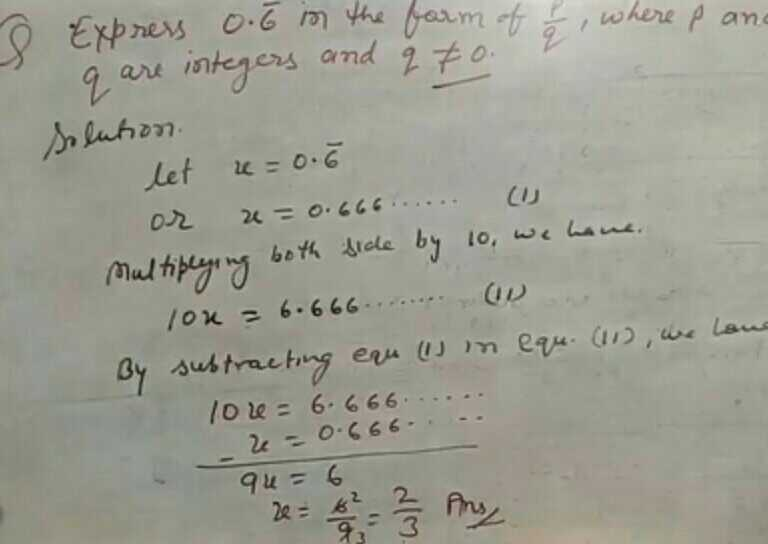 Q Express 0.6̅ in the form of p/q, where p and
q are integers and q ≠ 0.
Solution.
let x = 0.6̅
or x = 0.666...... (I)
Multiplying both side by 10, we have.
10x = 6.666........ (II)
By subtracting equ (I) in equ. (II), we have
10x = 6.666......
- x = 0.666......
9x = 6
x = 6²/9₃ = 2/3 Ans